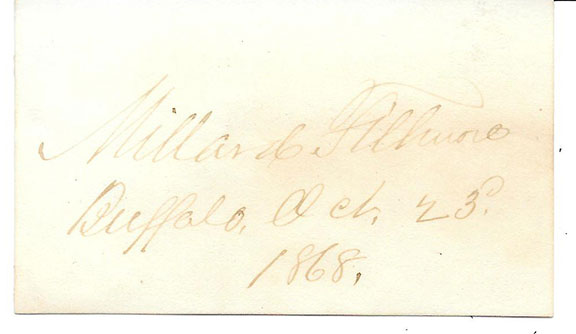 Millard Fillmore
Buffalo, Oct. 23d.
1868.